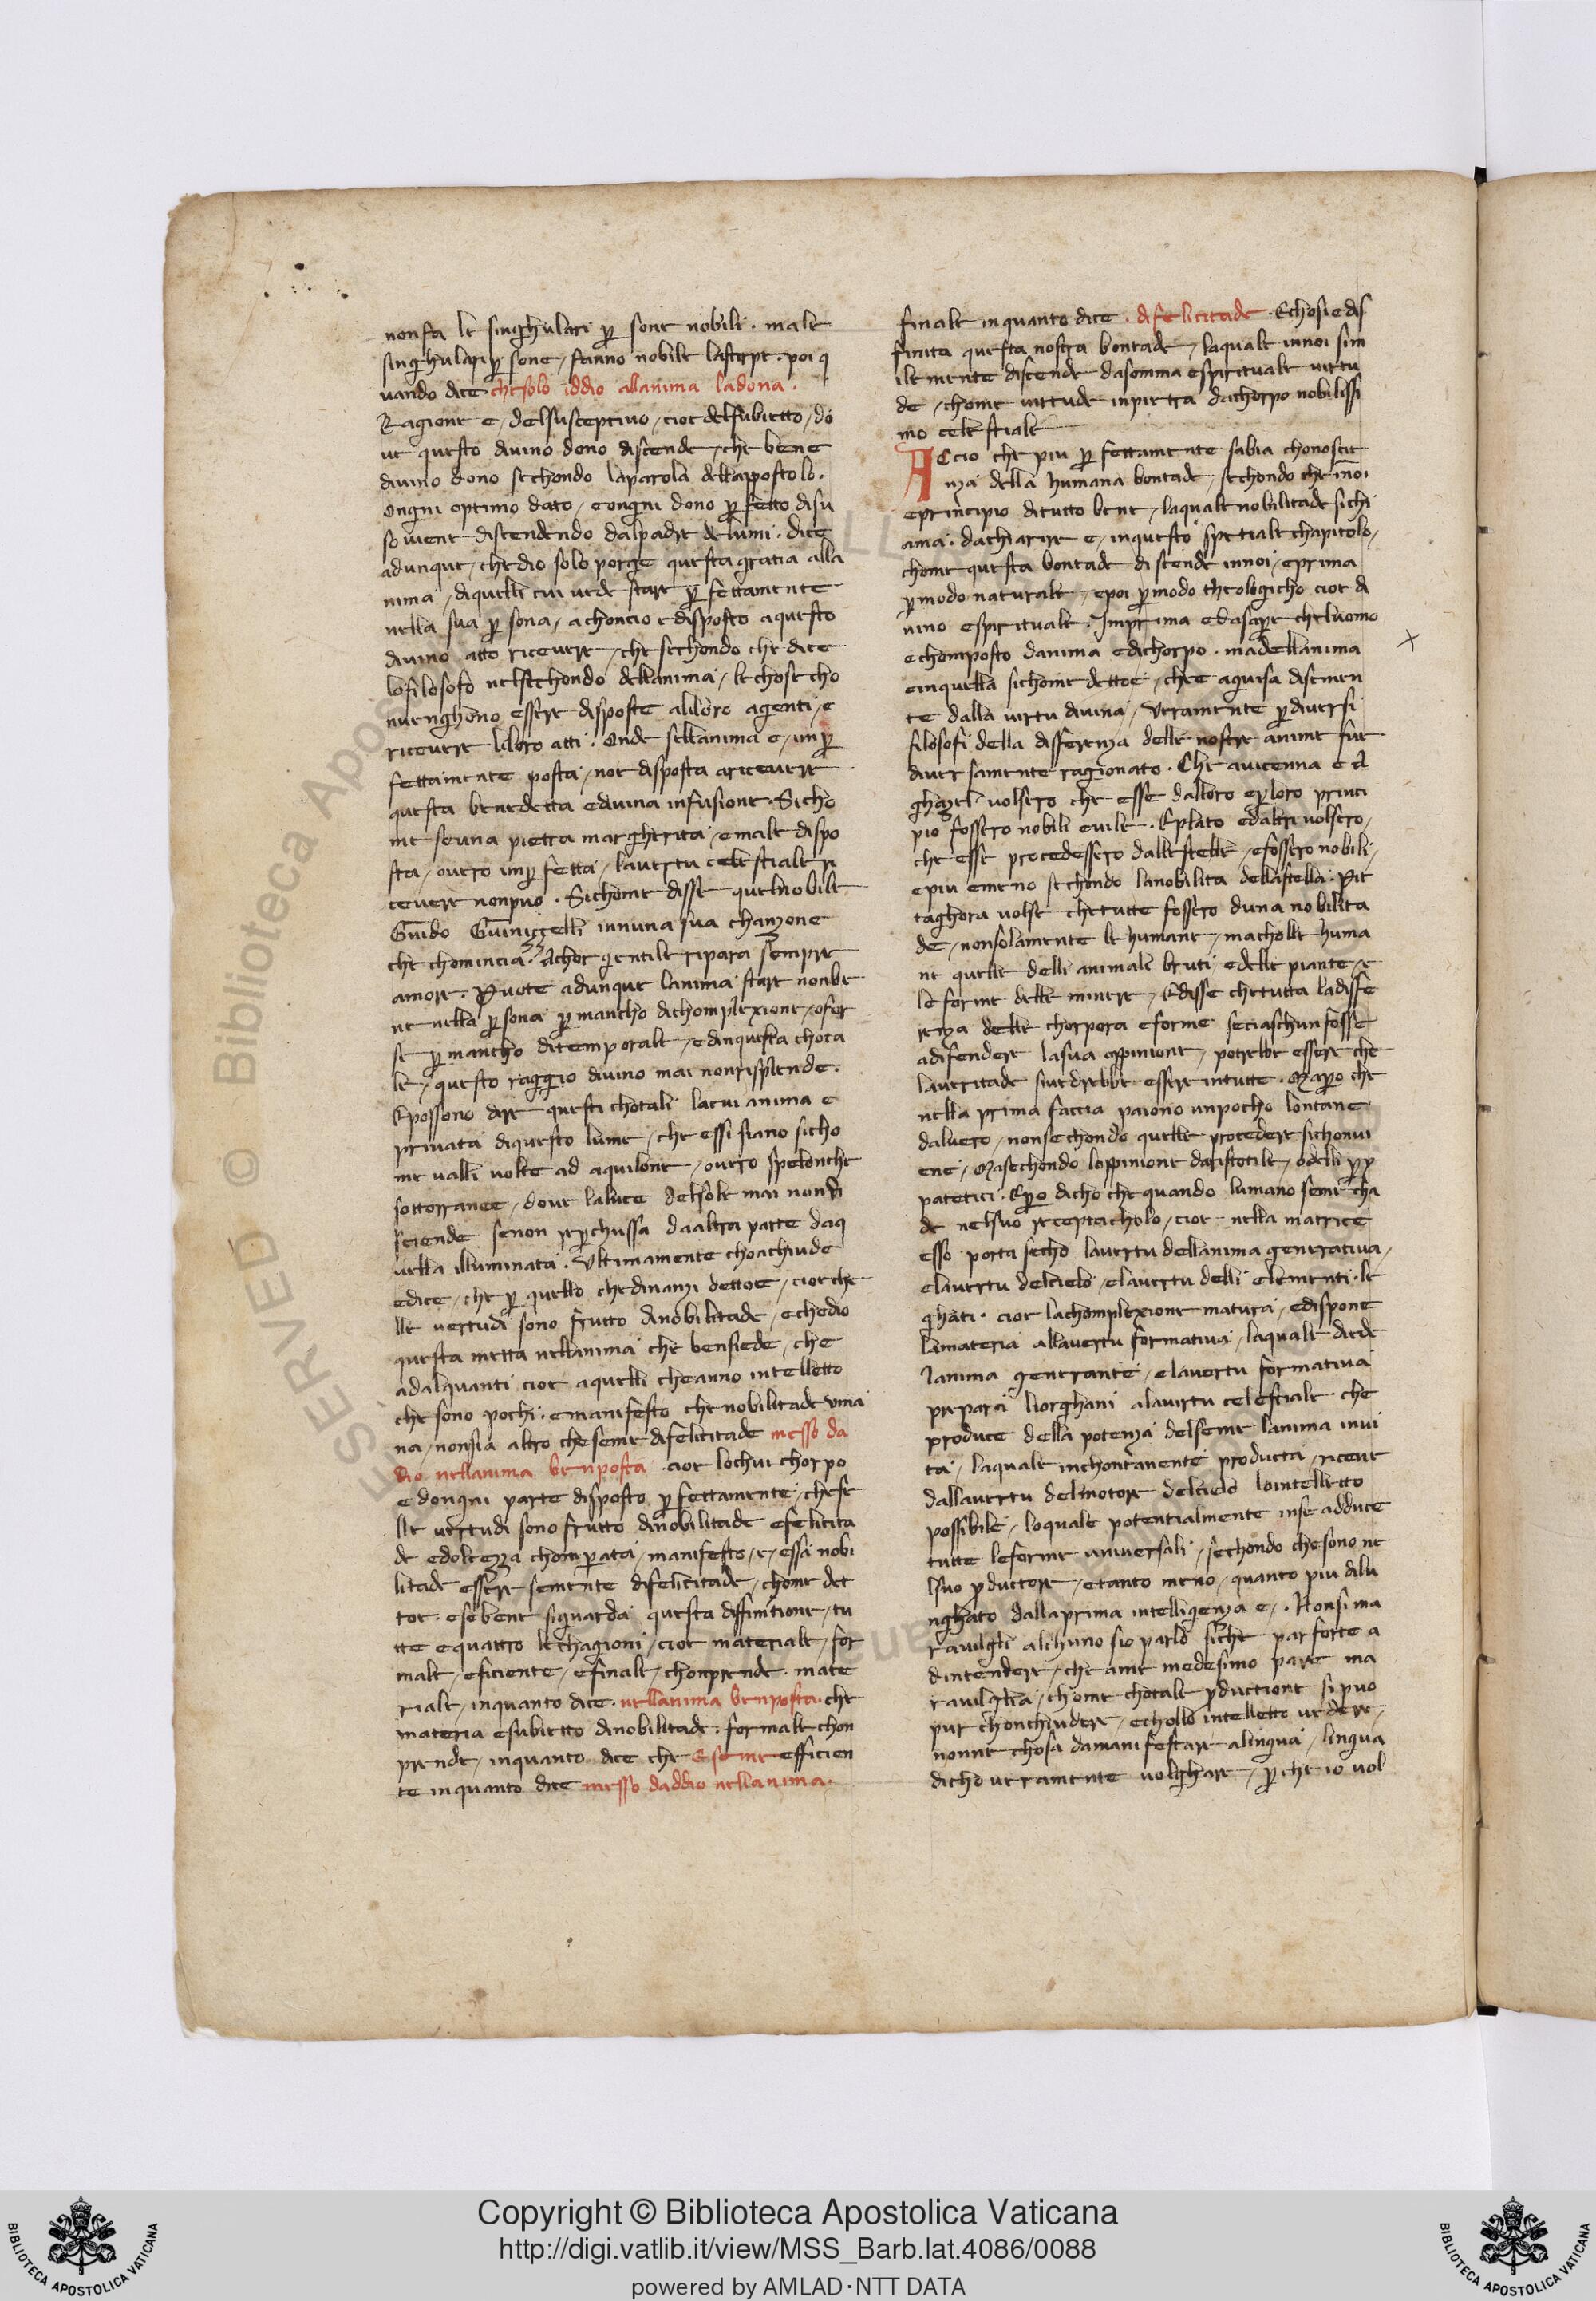 non fa le singhulari p̲ sone nobili . male
singhulari p̲ sone / fanno nobile lasterpe . poi q
uando dice chesolo iddio allanima ladona .
Ragione e / delsusceptiuo / cioe delsubietto / do
ue questo diuino dono discende / che bene
diuino dono sechondo laparola dellappostolo .
ongni optimo dato / eongni dono p̲ fetto disu
so uiene discendendo dalpadre delumi . dice
adunque / chedio solo porge questa gratia alla
nima / diquelli cui uede stare p̲ fettamente
nella sua p̲ sona / achoncio edisposto aquesto
diuino atto riceuere / chesechondo che dice
lofilosofo nelsechondo dellanima / lechose cho
nuenghono essere disposte aliloro agenti / e
riceuere liloro atti . Onde sellanima e / inp̲
fettamente posta / noe disposta ariceuere
questa benedetta ediuina infusione . Sicho
me seuna pietra margherita / emale dispo
sta / ouero inp̲ fetta / lauertu celestiale ri
ceuere nonpuo . Sichome disse quelnobile
Guido Guinizzelli innuna sua chanzone
che chomincia . Achor gentile ripara sempre
amore . Puote adunque lanima stare nonbe
ne nella p̲ sona p̲ mancho dichomplexione / ofor
se p̲ mancho ditemporale / edinquesta chota
le / questo raggio diuino mai nonrisplende .
Epossono dire questi chotali lacui anima e
priuata diquesto lume / che essi siano sicho
me ualli uolte ad aquilone / ouero spelonche
sottorranee / doue laluce delsole mai nondi
sciende senon rep̲chussa daaltra parte daq
uella illuminata . Ultimamente chonchiude
edice / che p̲ quello chedinanzi dettoe / cioeche
lle uertudi sono frutto dinobilitade / echedio
questa metta nellanima che bensiede / che
adalquanti cioe aquelli cheanno intelletto
che sono pochi . emanifesto chenobilitade vma
na / nonsia altro cheseme difelicitade messo da
dio nellanima benposta . cioe lochui chorpo
e dongni parte disposto p̲ fettamente / chese
lle uertudi sono frutto dinobilitade efelicita
de edolcezza chomp̲ata / manifesto / e / essa nobi
litade essere semente difelicitade / chome det
toe . esebene siguarda questa diffinitione / tu
tte equattro lechagioni / cioe materiale / for
male / eficiente / efinale / chonprende . mate
riale / inquanto dice . nellanima benposta . che
materia esubietto dinobilitade . formale chon
prende / inquanto dice che Eseme efficien
te inquanto dice messo daddio nellanima .
finale inquanto dice . difelicitade . Echosie dif
finita questa nostra bontade / laquale innoi sim
ilemente discende dasomma espirituale uirtu
de / chome uirtude inpietra dachorpo nobilissi
mo celestiale
ACcio che piu p̲ fettamente sabia chonoscie
nza della humana bontade / sechondo cheinnoi
eprincipio ditutto bene / laquale nobilitade sichi
ama . dachiarire e / inquesto spetiale chapitolo /
chome questa bontade discende innoi / eprima
p̲ modo naturale / epoi p̲ modo theologicho cioe di
uino espirituale . Imprima edasap̲e cheluomo
echomposto danima edichorpo . madellanima
einquella sichome dettoe / chee aguisa disemen
te dalla uirtu diuina / Veramente p̲ diuersi
filosofi della differenza delle nostre anime fue
diuersamente ragionato . Che auicenna e al
ghazel uolsero che esse dalloro ep̲ loro princi
pio fossero nobili euile . Eplato edaltri uolsero /
che esse procedessero dallestelle / efossero nobili /
epiu emeno sechondo lanobilita dellastella . Pit
taghora uolse chetutte fossero duna nobilita
de / nonsolamente le humane / macholle huma
ne quelle delli animali bruti / edelle piante / e
le forme delle minere / Edisse chetutta ladiffe
renza delle chorpora eforme seciaschun fosse
adifendere lasua oppinione / potrebbe essere che
laueritade siuedrebbe essere intutte . Map̲o che
nella prima faccia paiono unpocho lontane
daluero / nonsechondo quelle procedere siconui
ene / Masechondo loppinione daristotile / edelli p̲ip̲
patetici . Ep̲o dicho che quando lumano seme cha
de nelsuo receptacholo / cioe nella matrice
esso porta secho lauertu dellanima generatiua /
elauertu delcielo / elauertu delli elementi . le
ghati . cioe lachomplexione matura / edispone
lamateria allauertu formatiua / laquale diede
lanima generante / elauertu formatiua
prepara liorghani alauertu celestiale che
produce della potenza delseme lanima inui
ta / laquale inchontanente producta / riceue
dallauertu delmotore delcielo lointelletto
possibile / loquale potentialmente inse adduce
tutte leforme uniuersali / sechondo chesono ne
lsuo p̲ductore / etanto meno / quanto piu dilu
nghato dallaprima intelligenza e / . Nonsi ma
rauigli alchuno sio parlo siche par forte a
dintendere / che ame medesimo pare ma
rauiglia / chome chotale p̲ductione si puo
pur chonchiudere / echollo intelletto uedere /
nonne chosa damanifestare alingua / lingua
dicho ueramente uolghare / p̲che io uol
×
Copyright © Biblioteca Apostolica Vaticana
http://digi.vatlib.it/view/MSS_Barb.lat.4086/0088
powered by AMLAD·NTT DATA
BIBLIOTECA APOSTOLICA VATICANA
BIBLIOTECA APOSTOLICA VATICANA